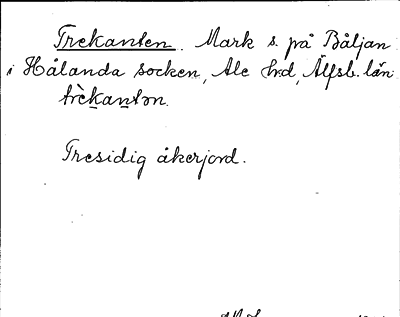 Trekanten. Mark s. på Båljan
i Hålanda socken, Ale hrd, Älfsb. län
trè̱ka̱ntən.
Tresidig åkerjord.